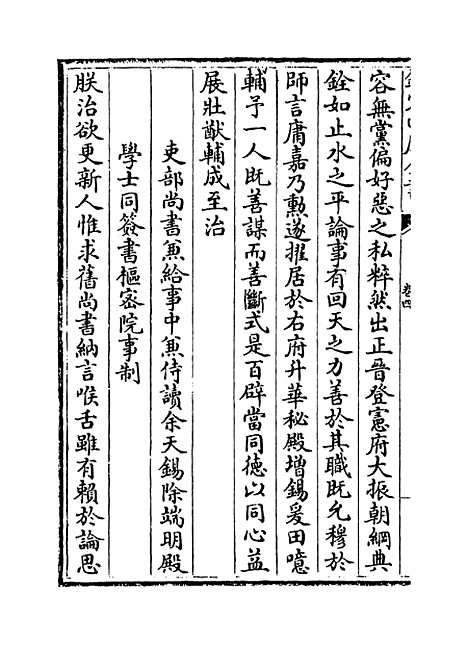 容無黨偏好惡之私粹然出正晉登憲府大振朝綱典
銓如止水之平論事有回天之力善於其職既允穆於
師言庸嘉乃勲遂擢居於右府升華秘殿增錫爰田噫
輔予一人既善謀而善斷式是百辟當同徳以同心益
展壯猷輔成至治
吏部尚書兼給事中兼侍讀余天錫除端明殿
學士同簽書樞宻院事制
朕治欲更新人惟求舊尚書納言喉舌雖有賴於論思
卷四